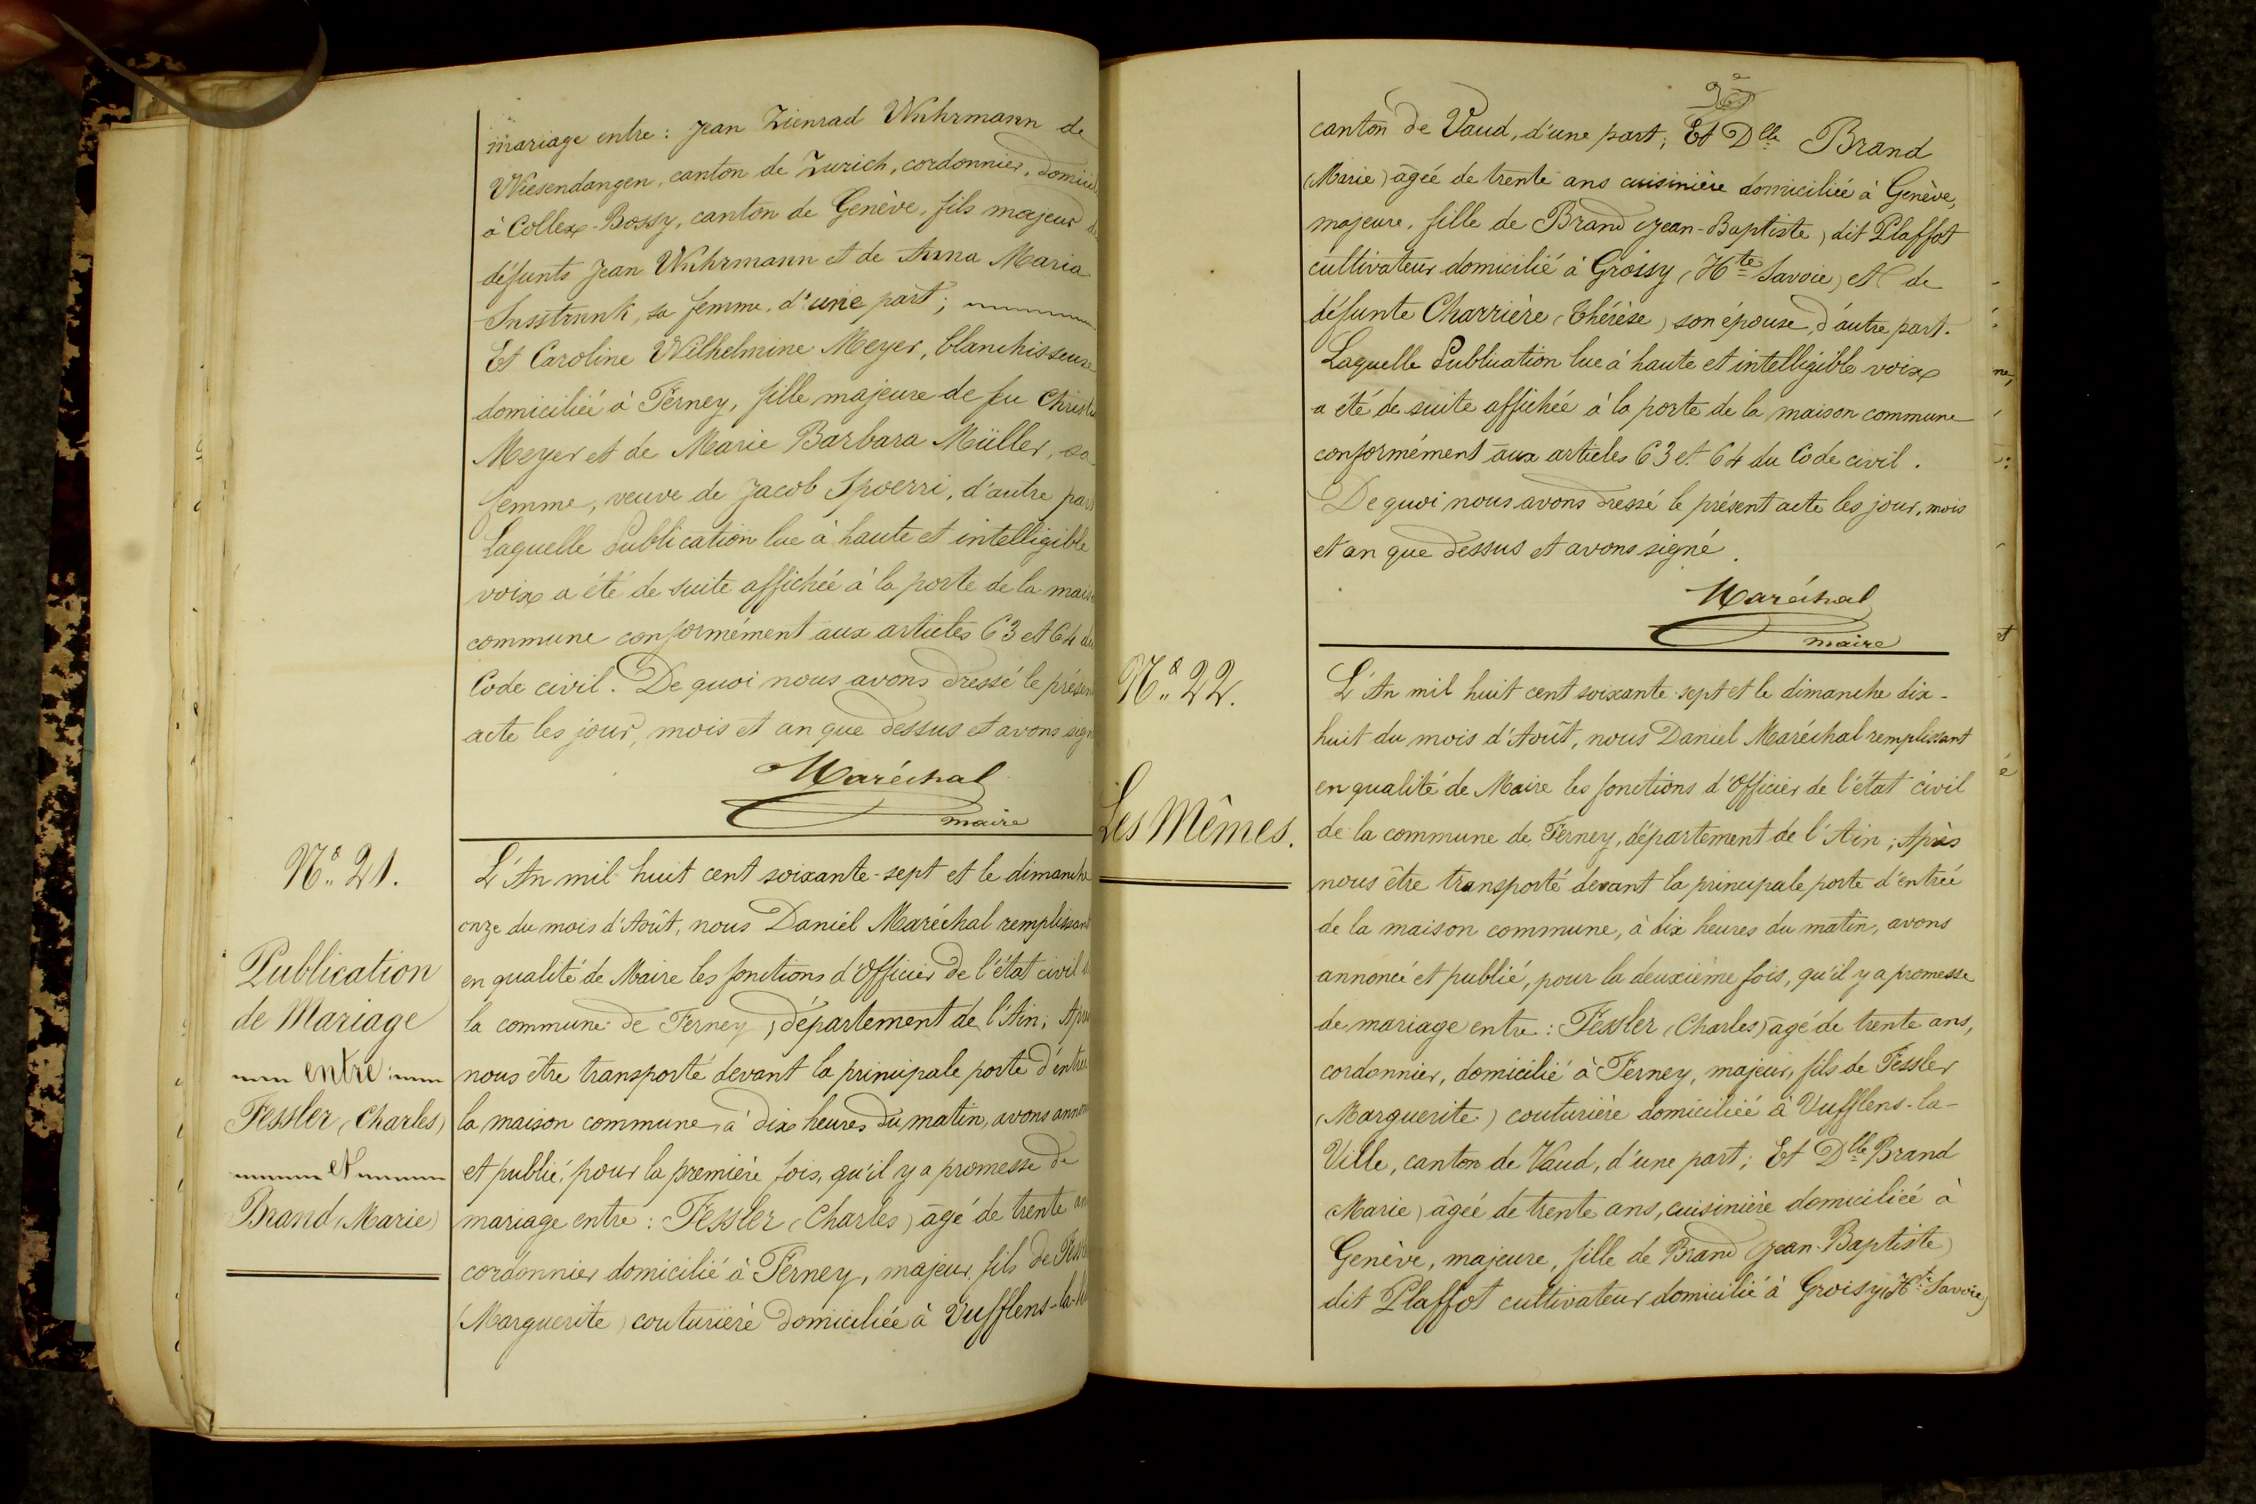 mariage entre : Jean Zienrad Wuhrmann de
Wiesendangen, canton de Zurich, cordonnier, domicil
à Collex-Bossy, canton de Genève, fils majeur de
défunts Jean Wuhrmann et de Anna Maria
Insstrunk, sa femme, d'une part ;
Et Caroline Wilhelmine Meyer, blanchisseuse
domiciliée à Ferney, fille majeure de feu Christ
Meyer et de Marie Barbara Müller, sa
femme, veuve de Jacob Spoerri, d'autre part
Laquelle Publication lue à haute et intelligible
voix a été de suite affichée à la porte de la mais
commune conformément aux articles 63 et 64 du
Code civil. De quoi nous avons dressé le présen
acte les jour, mois et an que dessus et avons sign
Maréchal
maire
N.º 21.
Publication
de Mariage
entre
Fessler (Charles)
et
Brand (Marie)
L'An mil huit cent soixante-sept et le dimanche
onze du mois d'Août, nous Daniel Maréchal remplissant
en qualité de Maire les fonctions d'Officier de l'état civil d
la commune de Ferney, département de l'Ain ; Apr
nous être transporté devant la principale porte d'entré
la maison commune, à dix heures du matin, avons annon
et publié, pour la première fois, qu'il y a promesse de
mariage entre : Fessler (Charles) âgé de trente an
cordonnier domicilié à Ferney, majeur, fils de Fess
(Marguerite) couturière domiciliée à Vufflens-la-
canton de Vaud, d'une part ; Et Dlle Brand
(Marie) âgée de trente ans cuisinière domiciliée à Genève,
majeure, fille de Brand (Jean-Baptiste) dit Plaffot
cultivateur domicilié à Groisy (Hte Savoie) et de
défunte Charrière (Thérèse) son épouse, d'autre part.
Laquelle Publication lue à haute et intelligible voix
a été de suite affichée à la porte de la maison commune
conformément aux articles 63 et 64 du Code civil.
De quoi nous avons dressé le présent acte les jour, mois
et an que dessus et avons signé.
Maréchal
maire
N.º 22.
Les Mêmes.
L'An mil huit cent soixante-sept et le dimanche dix-
huit du mois d'Août, nous Daniel Maréchal remplissant
en qualité de Maire les fonctions d'Officier de l'état civil
de la commune de Ferney, département de l'Ain ; Après
nous être transporté devant la principale porte d'entrée
de la maison commune, à dix heures du matin, avons
annoncé et publié, pour la deuxième fois, qu'il y a promesse
de mariage entre : Fessler (Charles) âgé de trente ans,
cordonnier, domicilié à Ferney, majeur, fils de Fessler
(Marguerite) couturière domiciliée à Vufflens-la-
Ville, canton de Vaud, d'une part ; Et Dlle Brand
(Marie) âgée de trente ans, cuisinière domiciliée à
Genève, majeure, fille de Brand (Jean-Baptiste)
dit Plaffot cultivateur domicilié à Groisy (Hte Savoie)